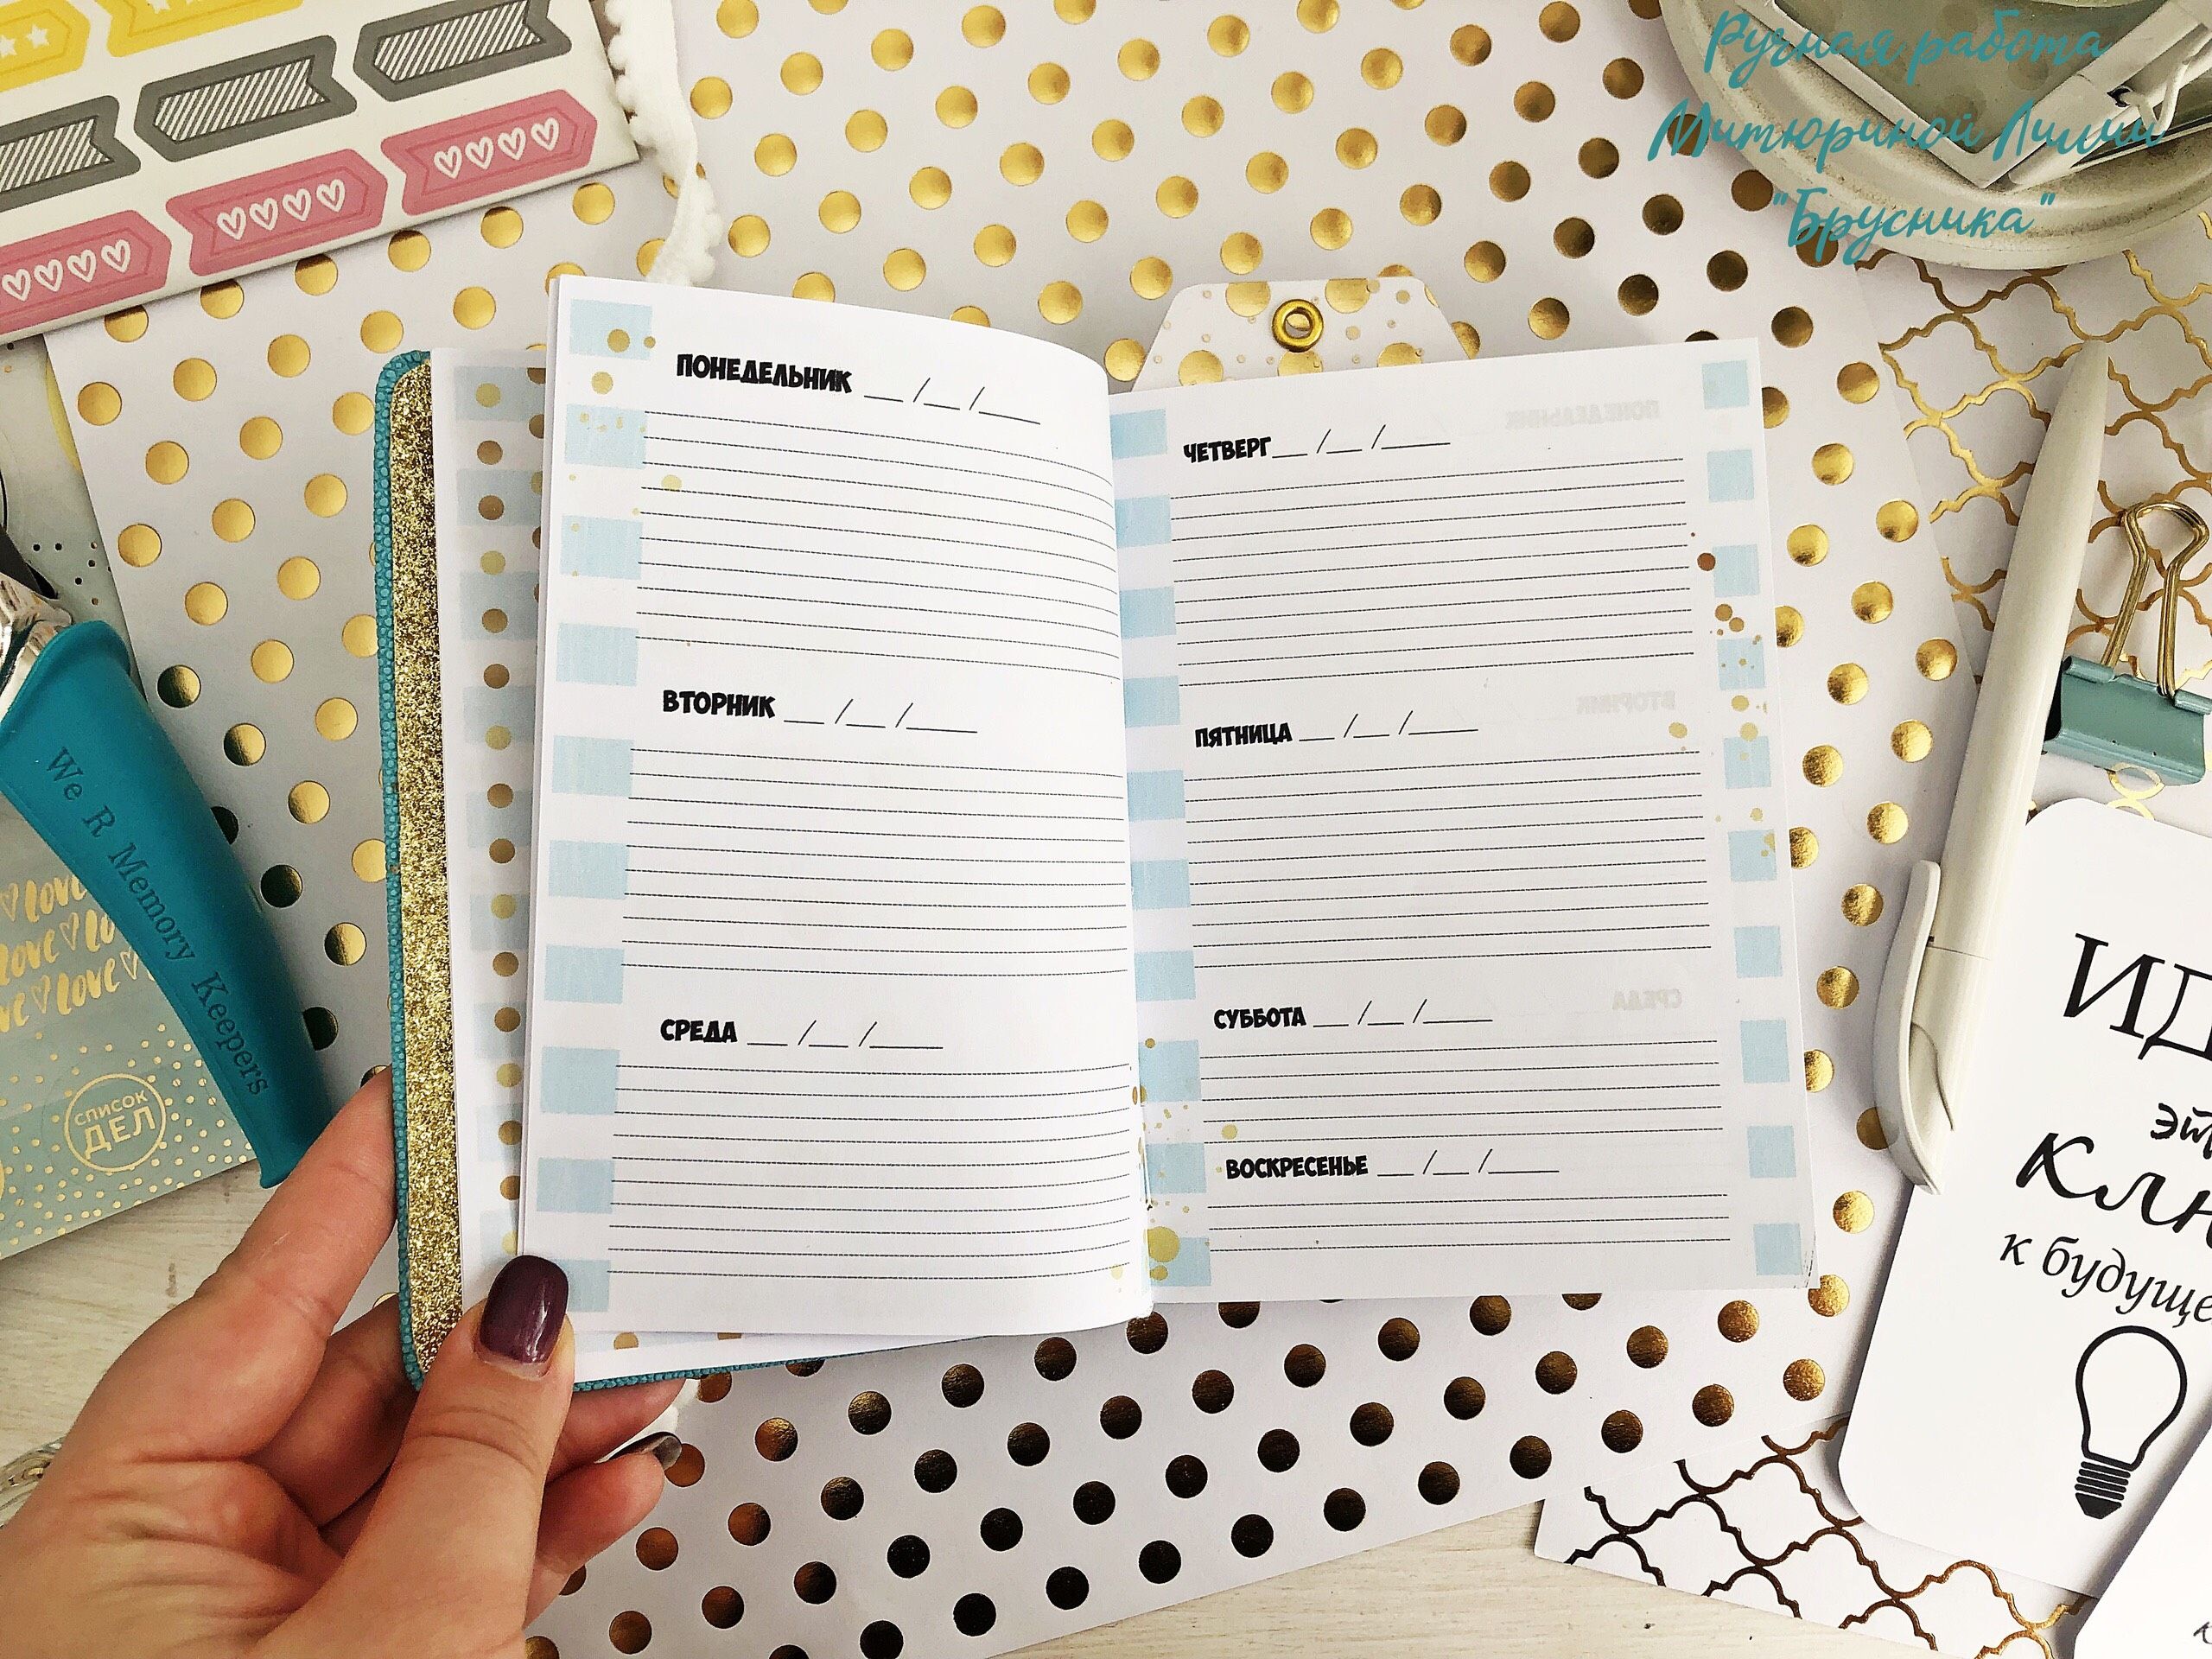 Ручная работа
Митюриной Лилии
"Брусника"
ПОНЕДЕЛЬНИК __ /__ /____
ВТОРНИК __ /__ /____
СРЕДА __ /__ /____
ЧЕТВЕРГ __ /__ /____
ПЯТНИЦА __ /__ /____
СУББОТА __ /__ /____
ВОСКРЕСЕНЬЕ __ /__ /____
We R Memory Keepers
love
love
love
СПИСОК
ДЕЛ
к